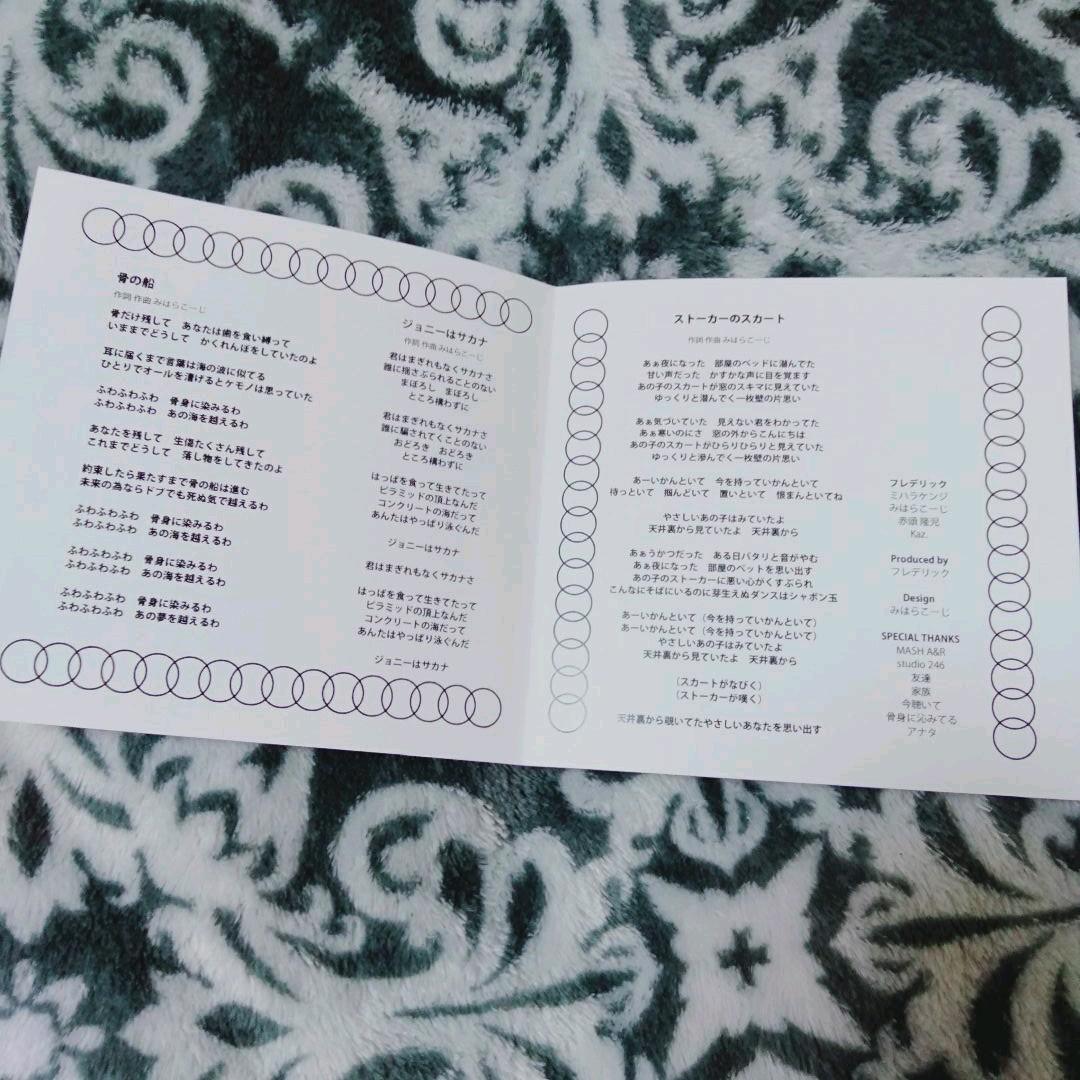 骨の船
作詞 作曲 みはらこーじ
骨だけ残して　あなたは歯を食い縛って
いままでどうして　かくれんぼをしていたのよ
耳に届くまで言葉は海の波に似てる
ひとりでオールを漕げるとケモノは思っていた
ふわふわふわ　骨身に染みるわ
ふわふわふわ　あの海を越えるわ
あなたを残して　生傷たくさん残して
これまでどうして　落し物をしてきたのよ
約束したら果たすまで骨の船は進む
未来の為ならドブでも死ぬ気で越えるわ
ふわふわふわ　骨身に染みるわ
ふわふわふわ　あの海を越えるわ
ふわふわふわ　骨身に染みるわ
ふわふわふわ　あの海を越えるわ
ふわふわふわ　骨身に染みるわ
ふわふわふわ　あの夢を越えるわ
ジョニーはサカナ
作詞 作曲 みはらこーじ
君はまぎれもなくサカナさ
誰に揺さぶられることのない
まぼろし　まぼろし
ところ構わずに
君はまぎれもなくサカナさ
誰に騙されてくことのない
おどろき　おどろき
ところ構わずに
はっぱを食って生きてたって
ピラミッドの頂上なんだ
コンクリートの海だって
あんたはやっぱり泳ぐんだ
ジョニーはサカナ
君はまぎれもなくサカナさ
はっぱを食って生きてたって
ピラミッドの頂上なんだ
コンクリートの海だって
あんたはやっぱり泳ぐんだ
ジョニーはサカナ
ストーカーのスカート
作詞 作曲 みはらこーじ
あぁ夜になった　部屋のベッドに潜んでた
甘い声だった　かすかな声に目を覚ます
あの子のスカートが窓のスキマに見えていた
ゆっくりと潜んでく一枚壁の片思い
あぁ気づいていた　見えない君をわかってた
あぁ寒いのにさ　窓の外からこんにちは
あの子のスカートがひらりひらりと見えていた
ゆっくりと滲んでく一枚壁の片思い
あーいかんといて　今を持っていかんといて
待っといて　掴んどいて　置いといて　恨まんといてね
やさしいあの子はみていたよ
天井裏から見ていたよ　天井裏から
あぁうかつだった　ある日バタリと音がやむ
あぁ夜になった　部屋のベットを思い出す
あの子のストーカーに悪い心がくすぶられ
こんなにそばにいるのに芽生えぬダンスはシャボン玉
あーいかんといて（今を持っていかんといて）
あーいかんといて（今を持っていかんといて）
やさしいあの子はみていたよ
天井裏から見ていたよ　天井裏から
（スカートがなびく）
（ストーカーが嘆く）
天井裏から覗いてたやさしいあなたを思い出す
フレデリック
ミハラケンジ
みはらこーじ
赤頭 隆児
Kaz.
Produced by
フレデリック
Design
みはらこーじ
SPECIAL THANKS
MASH A&R
studio 246
友達
家族
今聴いて
骨身に沁みてる
アナタ